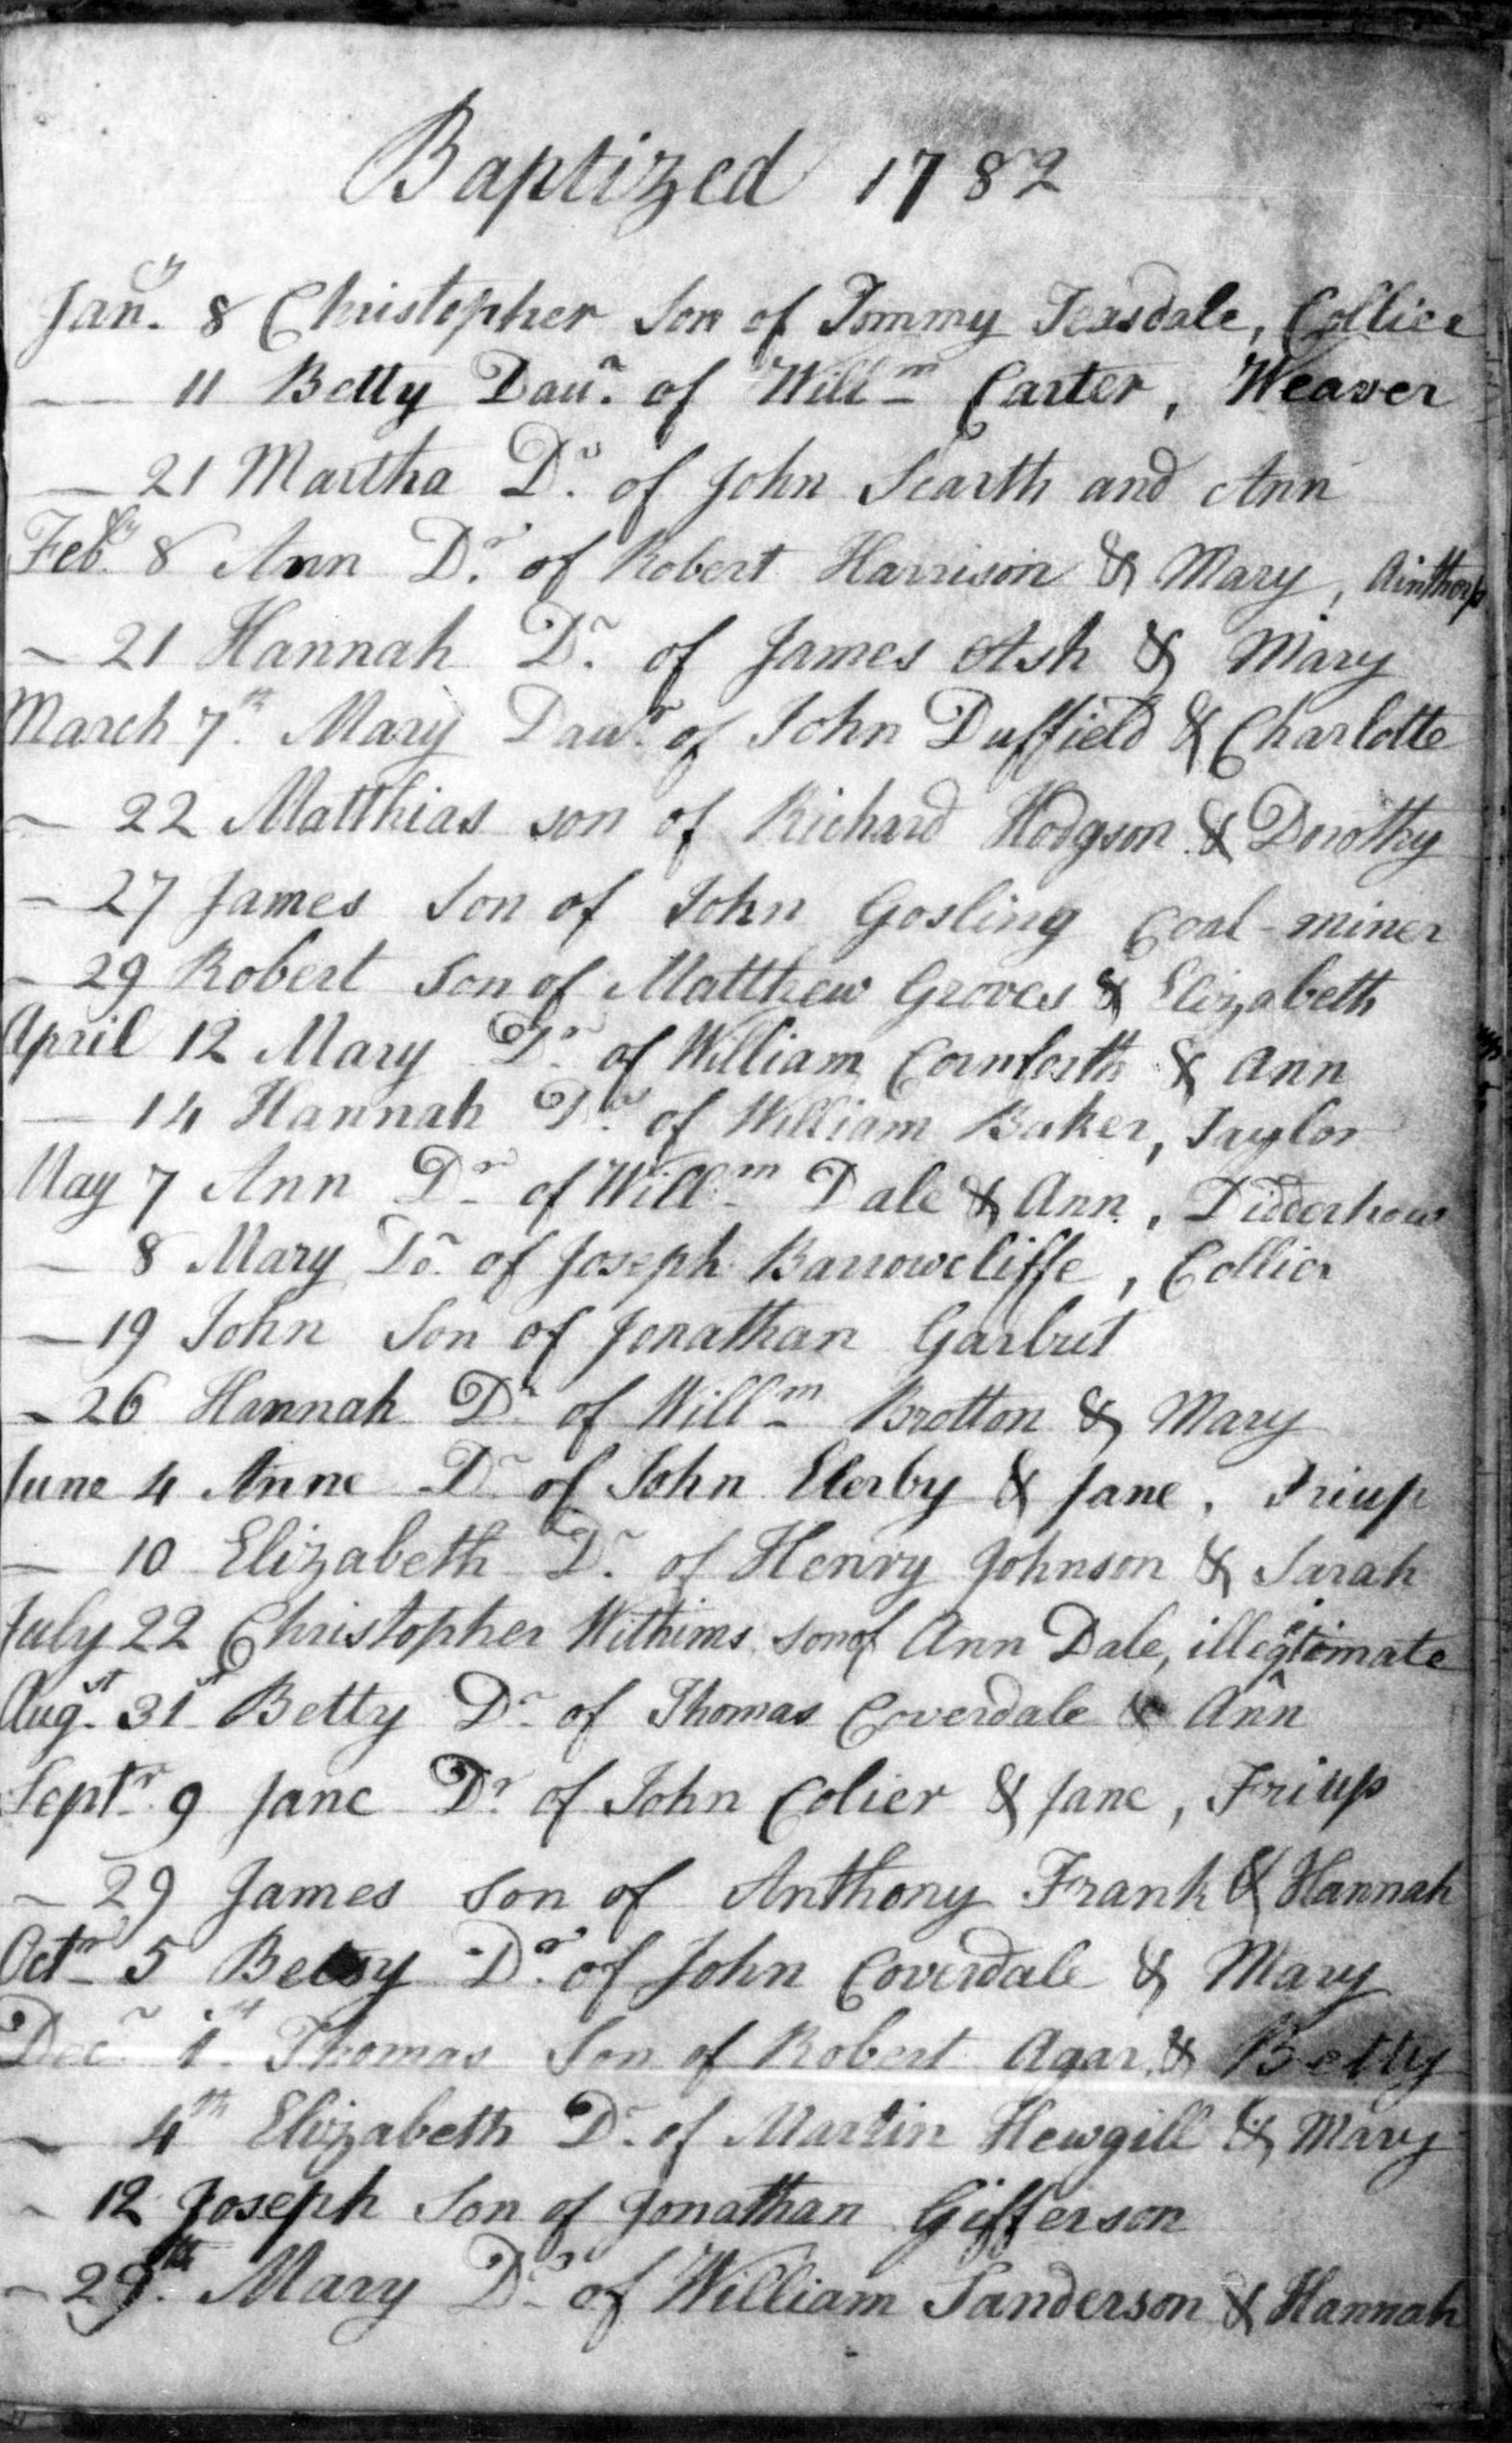 Baptized 1782
Jan.ry 8 Christopher Son of Tommy Teasdale, Collier
— 11 Betty Daur. of Willm Carter, Weaver
— 21 Martha Dr. of John Scarth and Ann
Feb.ry 8 Ann Dr. of Robert Harrison & Mary, Ainthorp
— 21 Hannah Dr. of James Ash & Mary
March 7th. Mary Daur. of John Duffield & Charlotte
— 22 Matthias son of Richard Hodgson & Dorothy
— 27 James Son of John Gosling Coal-miner
— 29 Robert Son of Matthew Groves & Elizabeth
April 12 Mary Dr. of William Cornforth & Ann
— 14 Hannah Dr. of William Baker, Taylor
May 7 Ann Dr. of Willm Dale & Ann, Didderhow
— 8 Mary Dr. of Joseph Barrowcliffe, Collier
— 19 John Son of Jonathan Garbut
— 26 Hannah Dr. of Willm Brotton & Mary
June 4 Anne Dr. of John Elerby & Jane, Friup
— 10 Elizabeth Dr. of Henry Johnson & Sarah
July 22 Christopher Withims son of Ann Dale, illegetimate
Augst. 31st Betty Dr. of Thomas Coverdale & Ann
Septr. 9 Jane Dr. of John Colier & Jane, Friup
— 29 James Son of Anthony Frank & Hannah
Octr. 5 Betsy Dr. of John Coverdale & Mary
Decr. 1st Thomas Son of Robert Agar & Betty
— 4th Elizabeth Dr. of Martin Hewgill & Mary
— 12 Joseph Son of Jonathan Gifferson
— 29th. Mary Dr. of William Sanderson & Hannah